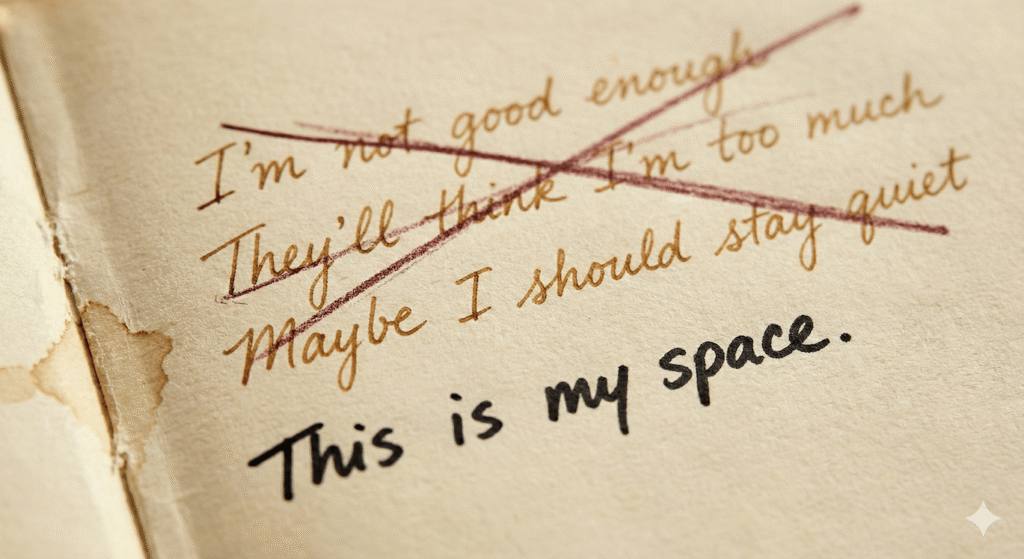 I'm not good enough
They'll think I'm too much
Maybe I should stay quiet
This is my space.